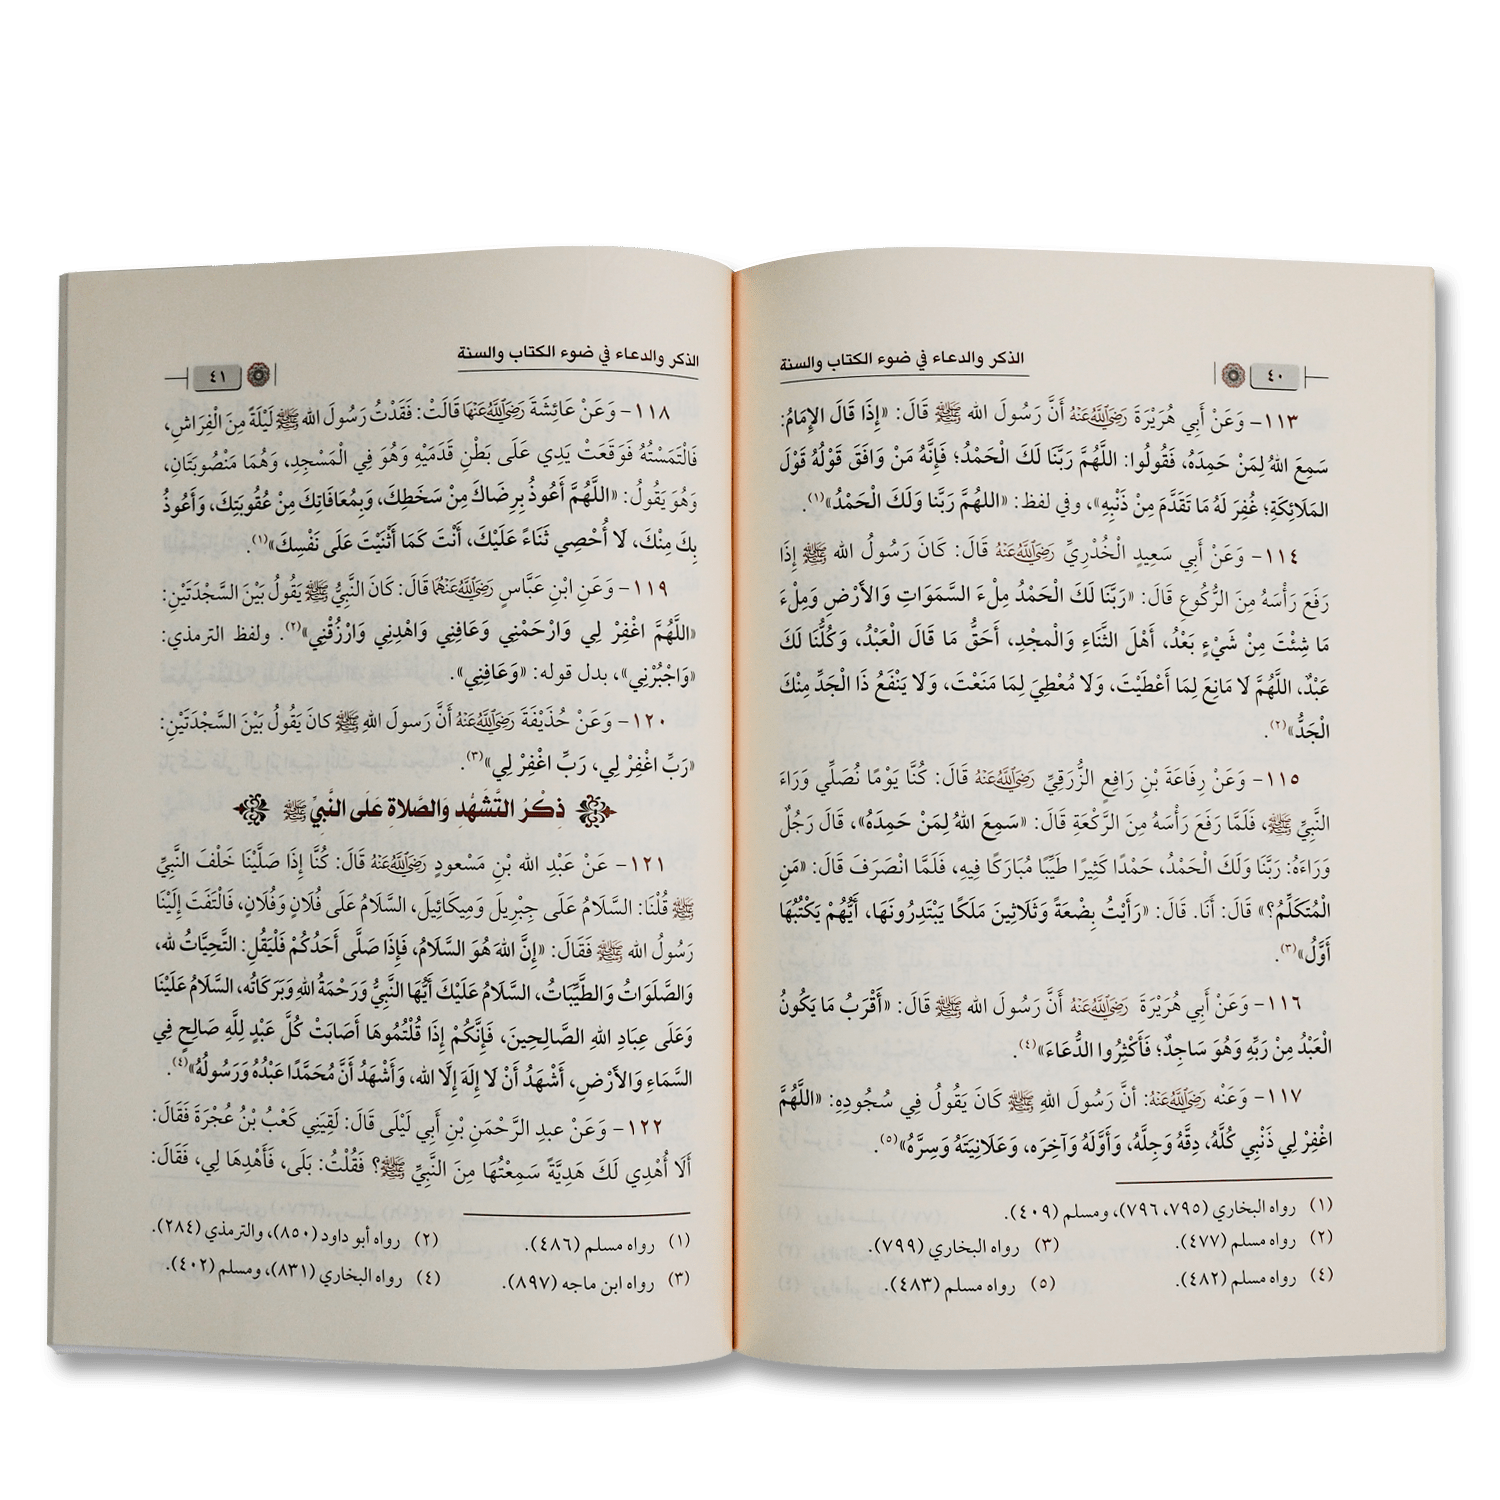 الذكر والدعاء في ضوء الكتاب والسنة
٤٠
١١٣- وَعَنْ أَبِي هُرَيْرَةَ رَضِيَ اللَّهُ عَنْهُ أَنَّ رَسُولَ الله ﷺ قَالَ: «إِذَا قَالَ الإِمَامُ:
سَمِعَ اللهُ لِمَنْ حَمِدَهُ، فَقُولُوا: اللَّهُمَّ رَبَّنَا لَكَ الْحَمْدُ؛ فَإِنَّهُ مَنْ وَافَقَ قَوْلُهُ قَوْلَ
المَلَائِكَةِ؛ غُفِرَ لَهُ مَا تَقَدَّمَ مِنْ ذَنْبِهِ»، وفي لفظ: «اللهُمَّ رَبَّنا وَلَكَ الْحَمْدُ»(١).
١١٤- وَعَنْ أَبِي سَعِيدٍ الْخُدْرِيِّ رَضِيَ اللَّهُ عَنْهُ قَالَ: كَانَ رَسُولُ الله ﷺ إِذَا
رَفَعَ رَأْسَهُ مِنَ الرُّكُوعِ قَالَ: «رَبَّنَا لَكَ الْحَمْدُ مِلْءَ السَّمَوَاتِ وَالأَرْضِ وَمِلْءَ
مَا شِئْتَ مِنْ شَيْءٍ بَعْدُ، أَهْلَ الثَّنَاءِ وَالْمجْدِ، أَحَقُّ مَا قَالَ الْعَبْدُ، وَكُلُّنَا لَكَ
عَبْدٌ، اللَّهُمَّ لَا مَانِعَ لِمَا أَعْطَيْتَ، وَلَا مُعْطِيَ لِمَا مَنَعْتَ، وَلَا يَنْفَعُ ذَا الْجَدِّ مِنْكَ
الْجَدُّ»(٢).
١١٥- وَعَنْ رِفَاعَةَ بْنِ رَافِعٍ الزُّرَقِيِّ رَضِيَ اللَّهُ عَنْهُ قَالَ: كُنَّا يَوْمًا نُصَلِّي وَرَاءَ
النَّبِيِّ ﷺ، فَلَمَّا رَفَعَ رَأْسَهُ مِنَ الرَّكْعَةِ قَالَ: «سَمِعَ اللهُ لِمَنْ حَمِدَهُ»، قَالَ رَجُلٌ
وَرَاءَهُ: رَبَّنَا وَلَكَ الْحَمْدُ، حَمْدًا كَثِيرًا طَيِّبًا مُبَارَكًا فِيهِ، فَلَمَّا انْصَرَفَ قَالَ: «مَنِ
الْمُتَكَلِّمُ؟» قَالَ: أَنَا. قَالَ: «رَأَيْتُ بِضْعَةً وَثَلَاثِينَ مَلَكًا يَبْتَدِرُونَهَا، أَيُّهُمْ يَكْتُبُهَا
أَوَّلُ»(٣).
١١٦- وَعَنْ أَبِي هُرَيْرَةَ رَضِيَ اللَّهُ عَنْهُ أَنَّ رَسُولَ الله ﷺ قَالَ: «أَقْرَبُ مَا يَكُونُ
الْعَبْدُ مِنْ رَبِّهِ وَهُوَ سَاجِدٌ؛ فَأَكْثِرُوا الدُّعَاءَ»(٤).
١١٧- وَعَنْه رَضِيَ اللَّهُ عَنْهُ: أنَّ رَسُولَ اللهِ ﷺ كَانَ يَقُولُ فِي سُجُودِهِ: «اللَّهُمَّ
اغْفِرْ لِي ذَنْبِي كُلَّهُ، دِقَّهُ وَجِلَّهُ، وَأَوَّلَهُ وَآخِرَه، وَعَلَانِيَتَهُ وَسِرَّهُ»(٥).
(١) رواه البخاري (٧٩٥، ٧٩٦)، ومسلم (٤٠٩).
(٢) رواه مسلم (٤٧٧). (٣) رواه البخاري (٧٩٩).
(٤) رواه مسلم (٤٨٢). (٥) رواه مسلم (٤٨٣).
الذكر والدعاء في ضوء الكتاب والسنة
٤١
١١٨- وَعَنْ عَائِشَةَ رَضِيَ اللَّهُ عَنْهَا قَالَتْ: فَقَدْتُ رَسُولَ الله ﷺ لَيْلَةً مِنَ الْفِرَاشِ،
فَالْتَمَسْتُهُ فَوَقَعَتْ يَدِي عَلَى بَطْنِ قَدَمَيْهِ وَهُوَ فِي الْمَسْجِدِ، وَهُمَا مَنْصُوبَتَانِ،
وَهُوَ يَقُولُ: «اللَّهُمَّ أَعُوذُ بِرِضَاكَ مِنْ سَخَطِكَ، وَبِمُعَافَاتِكَ مِنْ عُقُوبَتِكَ، وَأَعُوذُ
بِكَ مِنْكَ، لَا أُحْصِي ثَنَاءً عَلَيْكَ، أَنْتَ كَمَا أَثْنَيْتَ عَلَى نَفْسِكَ»(١).
١١٩- وَعَنِ ابْنِ عَبَّاسٍ رَضِيَ اللَّهُ عَنْهُمَا قَالَ: كَانَ النَّبِيُّ ﷺ يَقُولُ بَيْنَ السَّجْدَتَيْنِ:
«اللَّهُمَّ اغْفِرْ لِي وَارْحَمْنِي وَعَافِنِي وَاهْدِنِي وَارْزُقْنِي»(٢). ولفظ الترمذي:
«وَاجْبُرْنِي»، بدل قوله: «وَعَافِنِي».
١٢٠- وَعَنْ حُذَيْفَةَ رَضِيَ اللَّهُ عَنْهُ أَنَّ رَسولَ اللهِ ﷺ كانَ يَقُولُ بَيْنَ السَّجْدَتَيْنِ:
«رَبِّ اغْفِرْ لِي، رَبِّ اغْفِرْ لِي»(٣).
ذِكْرُ التَّشَهُّدِ وَالصَّلاةِ عَلَى النَّبِيِّ ﷺ
١٢١- عَنْ عَبْدِ الله بْنِ مَسْعودٍ رَضِيَ اللَّهُ عَنْهُ قَالَ: كُنَّا إِذَا صَلَّيْنَا خَلْفَ النَّبِيِّ
ﷺ قُلْنَا: السَّلَامُ عَلَى جِبْرِيلَ وَمِيكَائِيلَ، السَّلَامُ عَلَى فُلَانٍ وَفُلَانٍ، فَالْتَفَتَ إِلَيْنَا
رَسُولُ الله ﷺ فَقَالَ: «إِنَّ اللهَ هُوَ السَّلَامُ، فَإِذَا صَلَّى أَحَدُكُمْ فَلْيَقُلِ: التَّحِيَّاتُ لله،
وَالصَّلَوَاتُ وَالطَّيِّبَاتُ، السَّلَامُ عَلَيْكَ أَيُّهَا النَّبِيُّ وَرَحْمَةُ اللهِ وَبَرَكَاتُه، السَّلَامُ عَلَيْنَا
وَعَلَى عِبَادِ اللهِ الصَّالِحِينَ، فَإِنَّكُمْ إِذَا قُلْتُمُوهَا أَصَابَتْ كُلَّ عَبْدٍ لِلَّهِ صَالِحٍ فِي
السَّمَاءِ وَالأَرْضِ، أَشْهَدُ أَنْ لَا إِلَهَ إِلَّا الله، وَأَشْهَدُ أَنَّ مُحَمَّدًا عَبْدُهُ وَرَسُولُهُ»(٤).
١٢٢- وَعَنْ عبدِ الرَّحْمَنِ بْنِ أَبِي لَيْلَى قَالَ: لَقِيَنِي كَعْبُ بْنُ عُجْرَةَ فَقَالَ:
أَلَا أُهْدِي لَكَ هَدِيَّةً سَمِعْتُهَا مِنَ النَّبِيِّ ﷺ؟ فَقُلْتُ: بَلَى، فَأَهْدِهَا لِي، فَقَالَ:
(١) رواه مسلم (٤٨٦). (٢) رواه أبو داود (٨٥٠)، والترمذي (٢٨٤).
(٣) رواه ابن ماجه (٨٩٧). (٤) رواه البخاري (٨٣١)، ومسلم (٤٠٢).